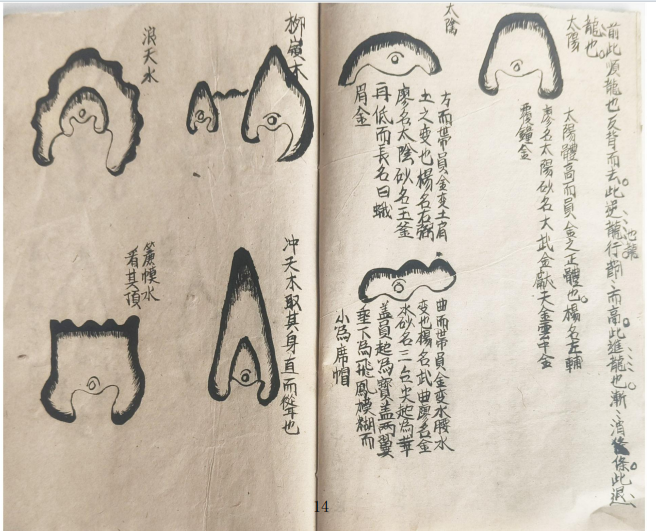 前此順龍也反背而去此逆龍行節〻而高此進龍也漸〻消條此退
龍也
太陽
太陽體高而員金之正體也楊名左輔
廖名太陽砂名大武金獻天金雲中金
覆鐘金
太陰
方而帶員金变土眉
土之变也楊名右弼
廖名太陰砂名玉釜
再低而長名曰蛾
眉金
曲而帶員金变水股水
变也楊名武曲廖名金
水砂名三台尖起為華
蓋員起為寶蓋兩翼
垂下為飛鳳模糊而
小為席帽
柳嶺木
浪天水
冲天木取其身直而聳也
簾幙水
看其頂
14